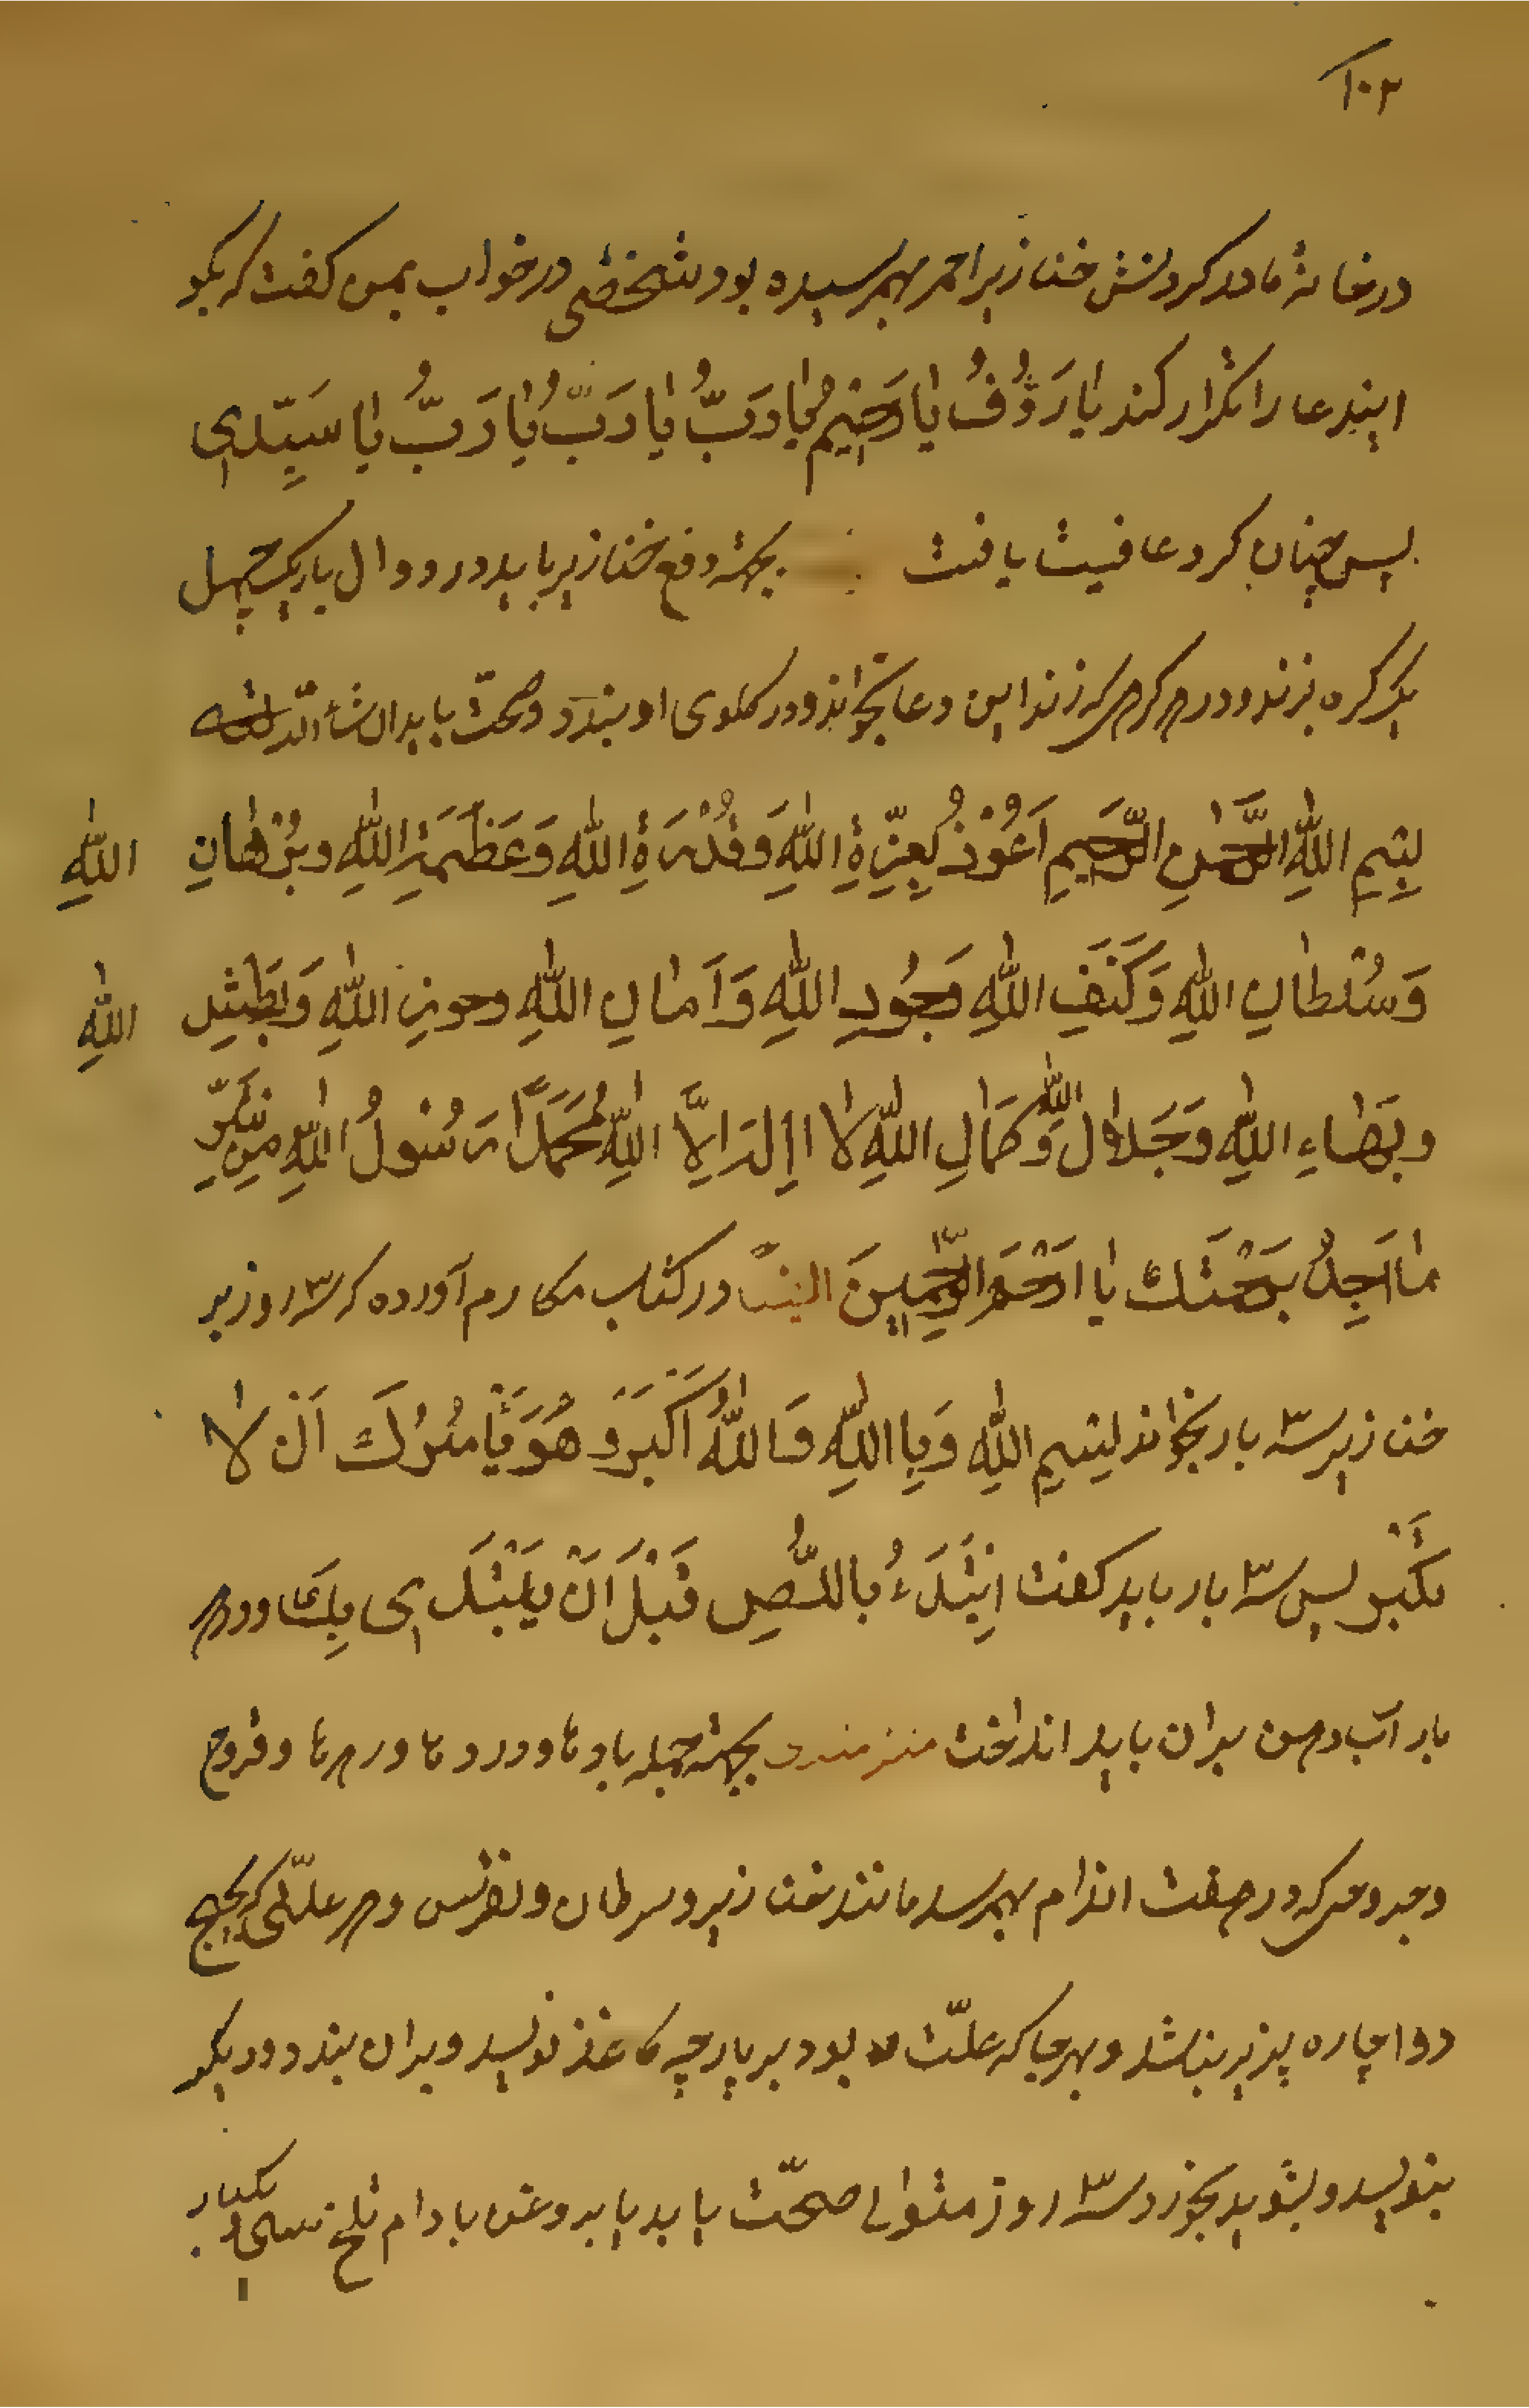 ۱۰۲
در خانهٔ ما در گردنش خنازیر احمر بهمرسیده بود شخصی در خواب بمن گفت که بگو
ایندعا را تکرار کند یا رَؤُفُ یا رَحیمُ یا رَبُّ یا رَبُّ یا رَبُّ یا سَیِّدی
پس چنان کرد عافیت یافت بجهة دفع خنازیر باید در دوال باریک چهل
یک گره بزنند و در هر گره که زند این دعا بخواند و در گلوی او بندد صحت یابد ان شاء الله
بِسْمِ اللهِ الرَّحْمٰنِ الرَّحیمِ اَعُوْذُ بِعِزَّةِ اللهِ وَقُدْرَةِ اللهِ وَعَظَمَةِ اللهِ وبُرْهٰانِ اللهِ
وَسُلْطٰانِ اللهِ وَكَنَفِ اللهِ وَجُودِ اللهِ وَاَمٰانِ اللهِ وحرزِ اللهِ وَبَطْشِ اللهِ
وبَهٰاءِ اللهِ وَجَلاٰلِ اللهِ وَكَمٰالِ اللهِ لاٰ اِلٰهَ اِلاَّ اللهُ مُحَمَّدٌ رَسُولُ اللهِ مِنْ شَرِّ
مٰا اَجِدُ بِرَحْمَتِكَ یٰا اَرْحَمَ الرّٰحِمینَ ایضاً در کتاب مکارم آورده که سه روز بر
خنازیر سه بار بخواند بِسْمِ اللهِ وَبِاللهِ وَاللهُ اَكْبَرُ وَهُوَ یَأْمُرُكَ اَنْ لاٰ
تَكْبُر پس سه بار باید گفت اِبْتَدَءُ بِاللِّصِ قَبْلَ اَنْ یَبْتَدِی بِكَ و در هر
بار آب دهن بر آن باید انداخت بجهة جمله بادها و دردها و ورمها و قروح
و هر که در هفت اندام بهمرسد مانند خنازیر و سرطان و نقرس و هر علّتی که بهیچ
دوا چاره پذیر نباشد و بهر جا که علّت بود بر پارچه کاغذ نویسد و بر آن بندد و دیگر
بنویسد و بشوید بخورد سه روز متوالی صحّت یابد یا بروغن بادام تلخ یکبار